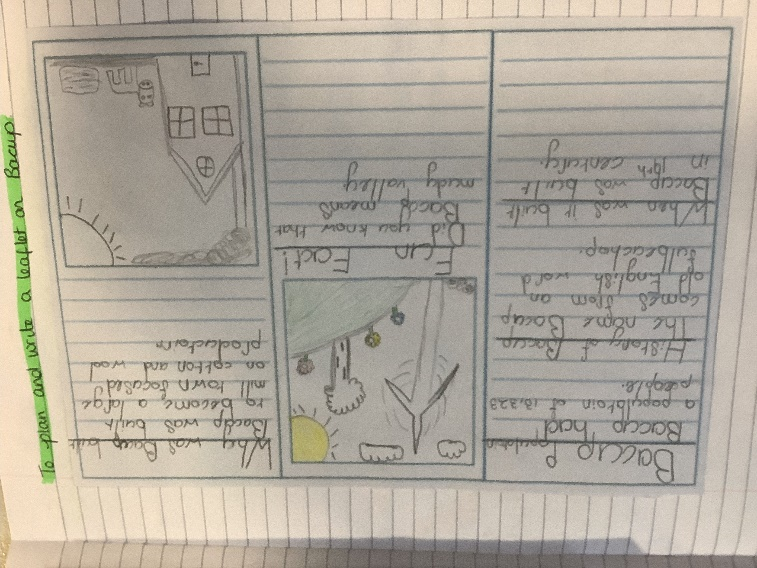 To plan and write a leaflet on Bacup
Baccup Population
Baccup had
a populatoin of 13,323
people.
History of Bacup
The name Bacup
comes from an
old English word
fulbeachop.
When was it built
Bacup was built
in 19th century.
Fun Fact!
Did you know that
Bacup means
mudy valley
Why was Bacup built
Bacup was built
to become a large
mill town focused
on cotton and wool
productoin